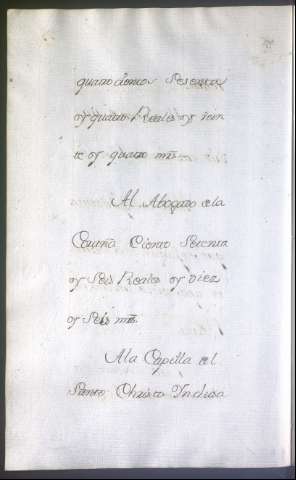 quatrocientos Sesenta
y quatro Reales y vein
te y quatro mrs.
Al Abogado de la
Ciento Setenta
y Seis Reales y Diez
y Seis mrs.
A la Capilla del
Santo Christo Inclusa